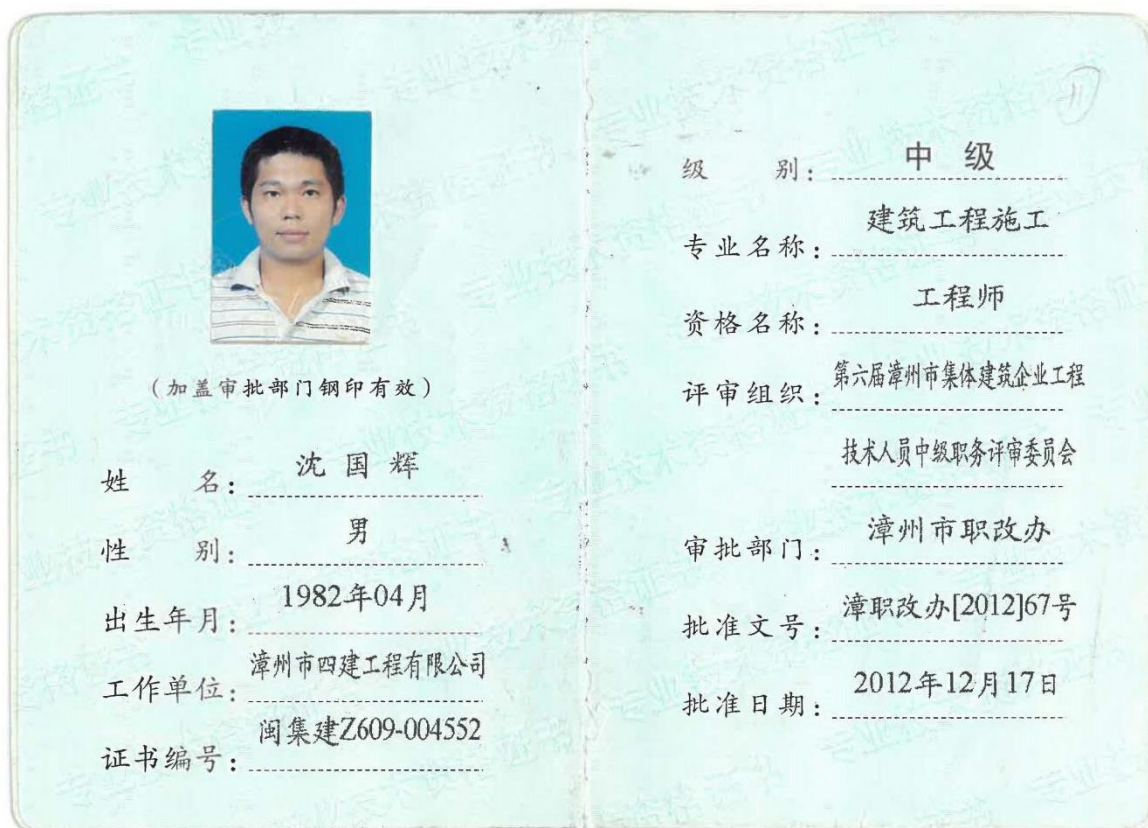 （加盖审批部门钢印有效）
姓 名：沈国辉
性 别：男
出生年月：1982年04月
工作单位：漳州市四建工程有限公司
证书编号：闽集建Z609-004552
11
级 别：中 级
专业名称：建筑工程施工
资格名称：工程师
评审组织：第六届漳州市集体建筑企业工程
技术人员中级职务评审委员会
审批部门：漳州市职改办
批准文号：漳职改办[2012]67号
批准日期：2012年12月17日
专业技术资格证书